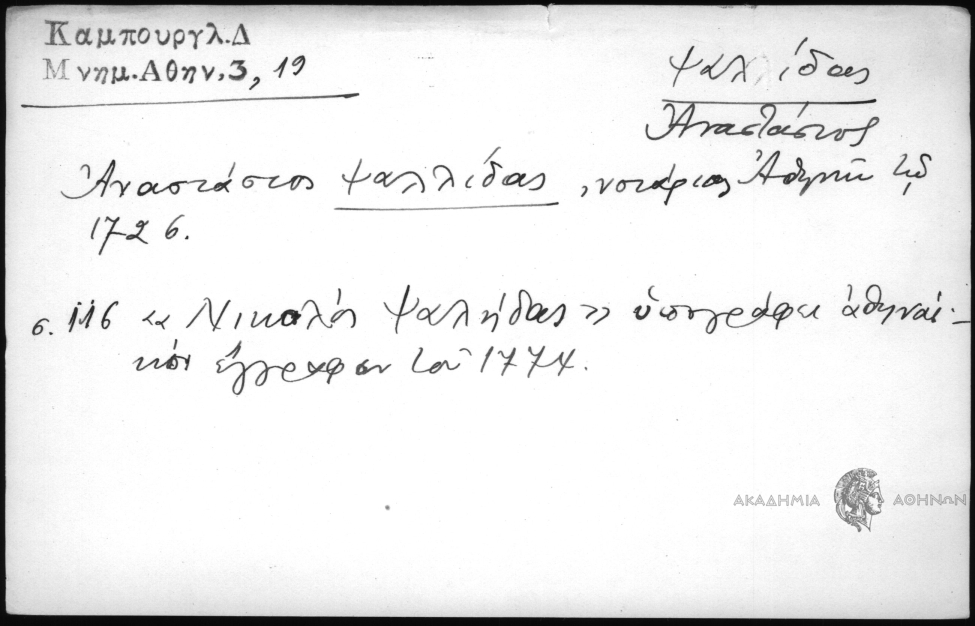 Καμπουργλ.Δ
Μνημ.Αθην.3, 19
Ψαλλίδας
Ἀναστάσιος
Ἀναστάσιος Ψαλλίδας, νοτάριος Ἀθηνῶν τῷ
1726.
σ. 116 «Νικολός Ψαλήδας» ὑπογράφει ἀθηναϊ-
κόν ἔγγραφον τοῦ 1774.
ΑΚΑΔΗΜΙΑ ΑΘΗΝΩΝ